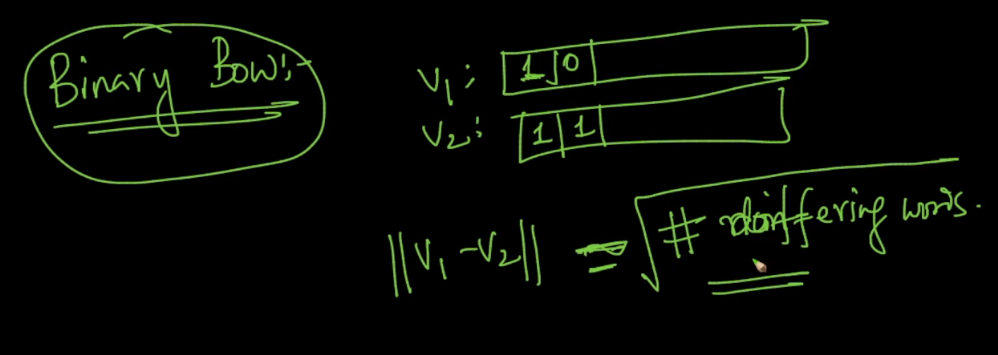 Binary BOW:-
V₁: 1 0
V₂: 1 1
||V₁ - V₂|| = √# differing words.